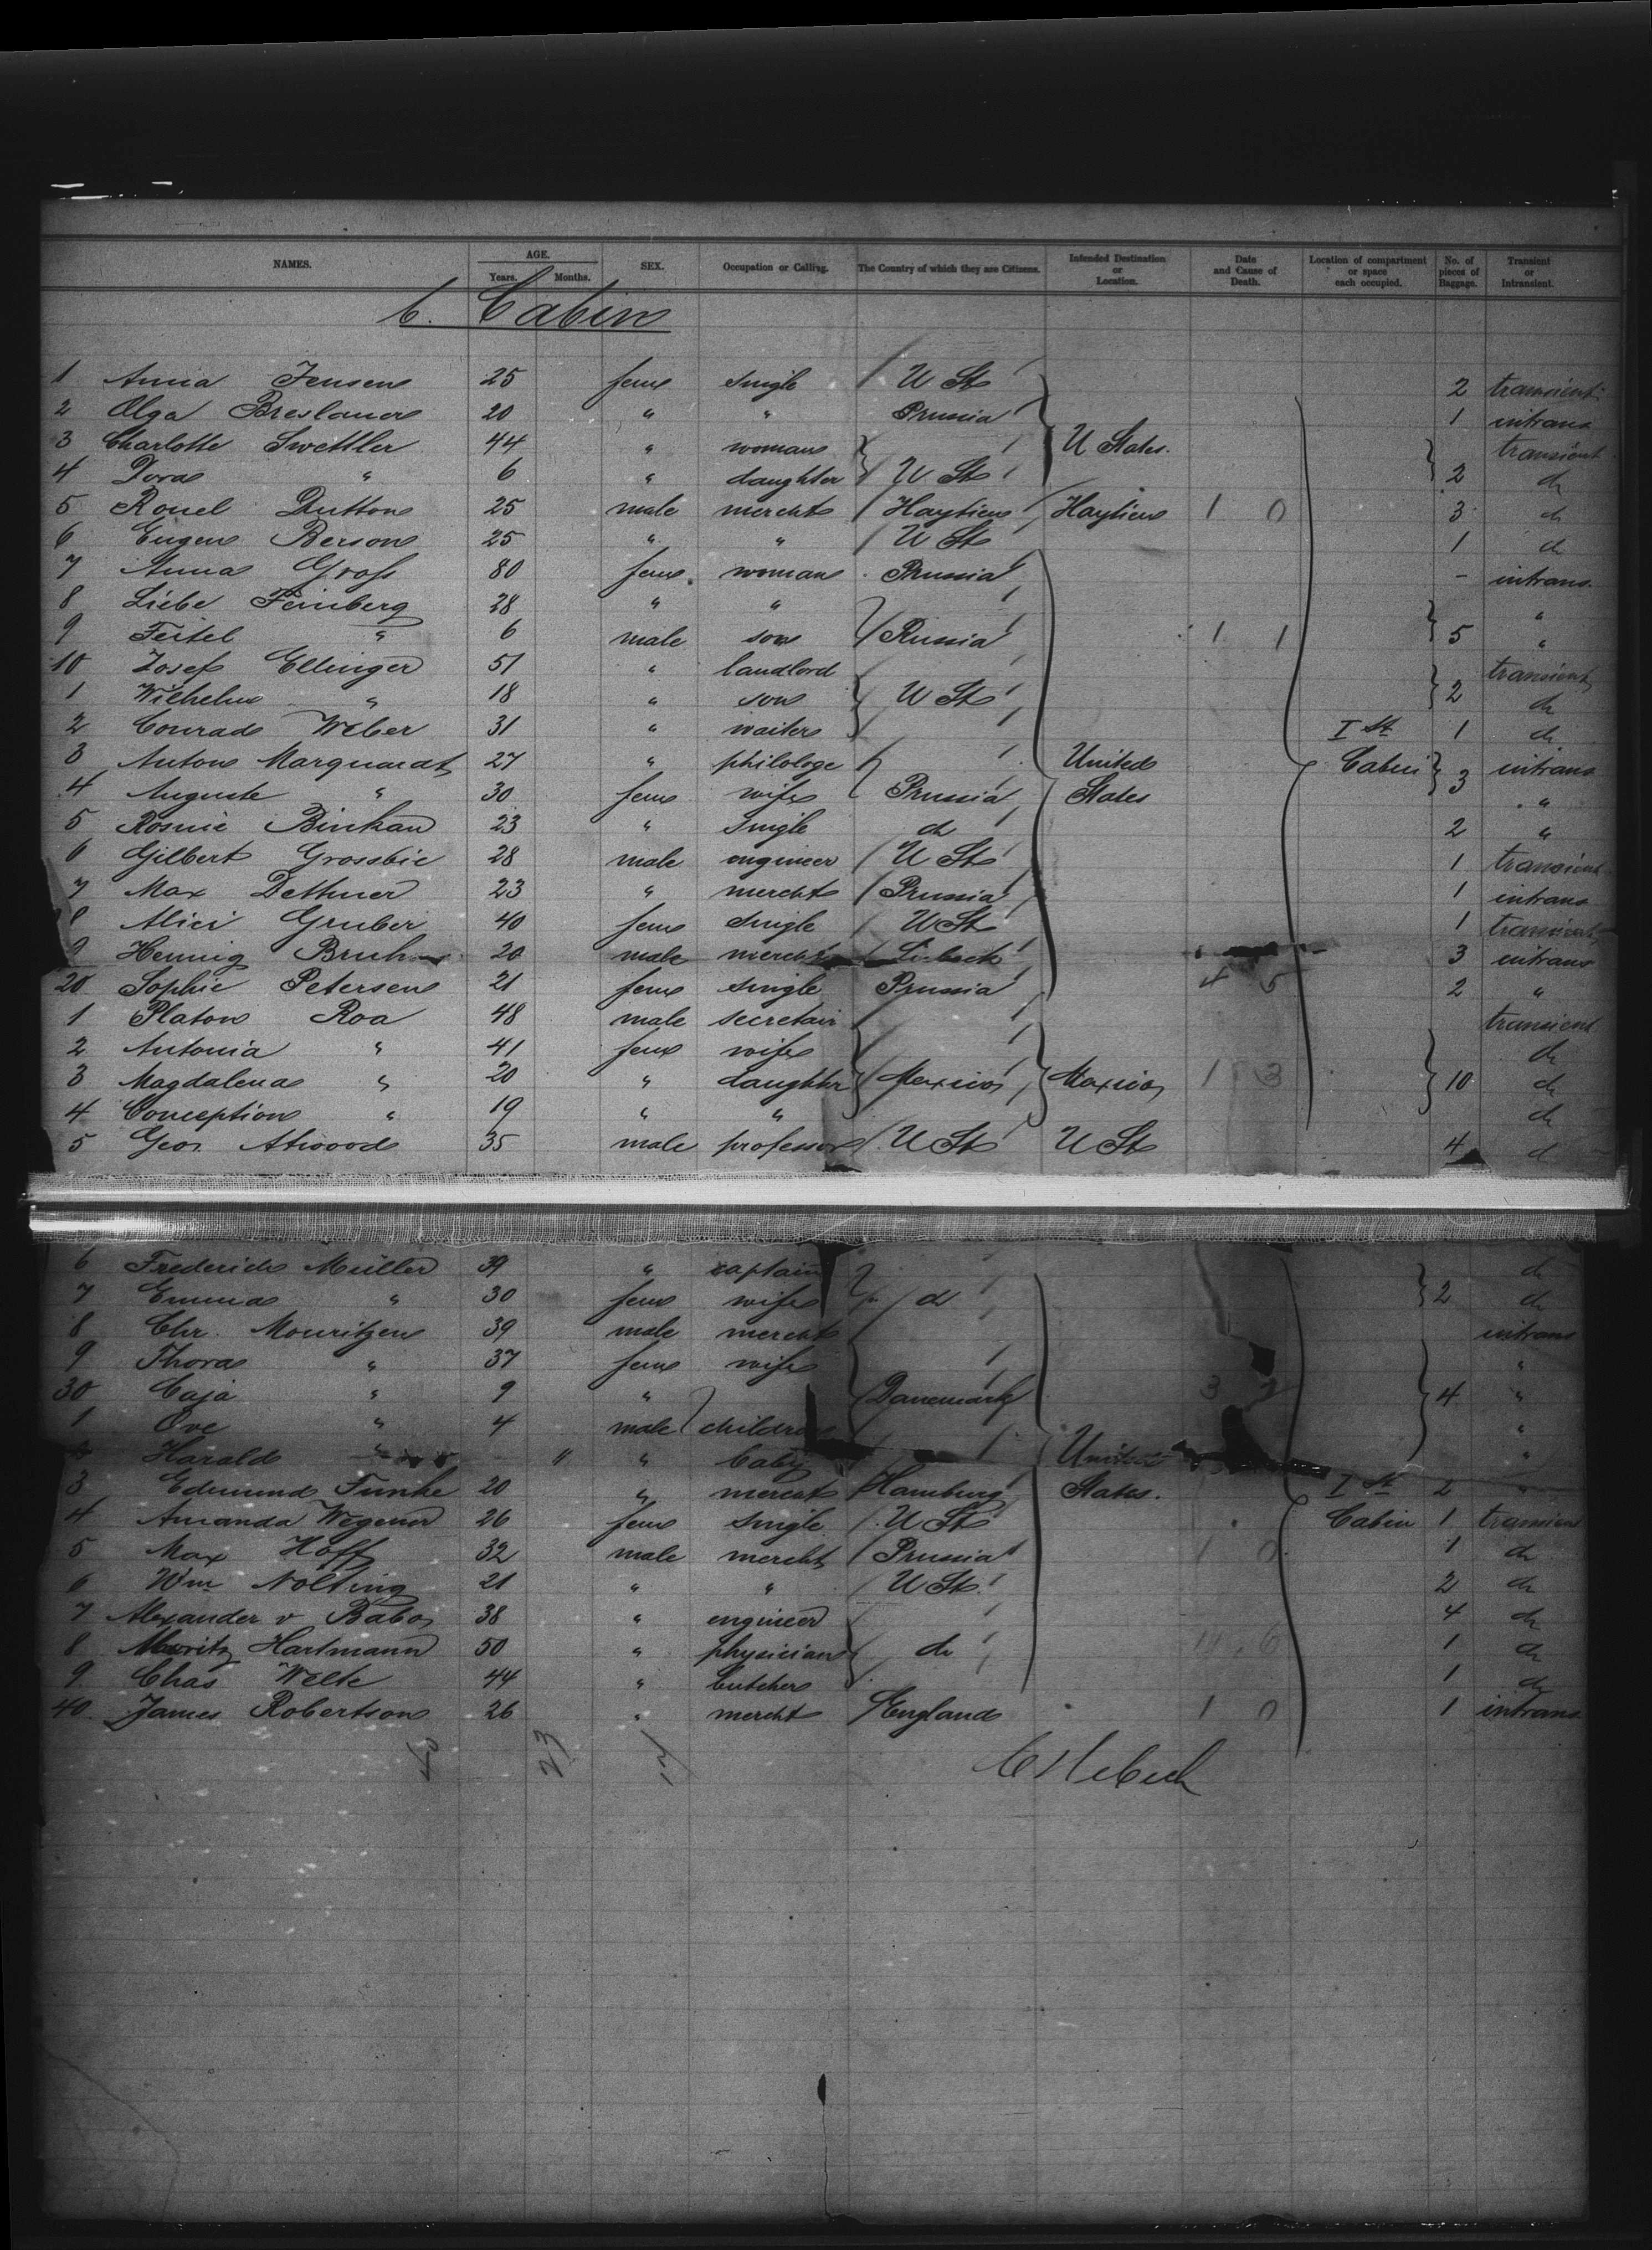 NAMES. AGE. SEX. Occupation or Calling. The Country of which they are Citizens. Intended Destination or Location. Date and Cause of Death. Location of compartment or space each occupied. No. of pieces of Baggage. Transient or Intransient.
Years. Months.
6. Cabin
1 Anna Jensen 25 fem single U St 2 transient
2 Olga Breslauer 20 " " Prussia 1 intrans
3 Charlotte Swettler 44 " woman U States. transient
4 Dora " 6 " daughter U St 2 do
5 Rouel Dutton 25 male mercht Haytien Haytien 1 0 3 do
6 Eugen Berson 25 " " U St 1 do
7 Anna Gross 80 fem. woman Prussia - intrans.
8 Liebe Feinberg 28 " " "
9 Feitel " 6 male son Russia 1 1 5 "
10 Josef Ellinger 51 " landlord transient
1 Wilhelm " 18 " son U St 2 do
2 Conrad Weber 31 " waiter I St 1 do
3 Anton Marquardt 27 " philologe United Cabin 3 intrans
4 Auguste " 30 fem wife Prussia States "
5 Rosnie Binkau 23 " single do 2 "
6 Gilbert Grossbie 28 male engineer U St 1 transient
7 Max Dethmer 23 " mercht Prussia 1 intrans
8 Alici Gruber 40 fem single U St 1 transient
9 Hennig Bruhn 20 male mercht Lübeck 3 intrans
20 Sophie Petersen 21 fem single Prussia 4 5 2 "
1 Platon Roa 48 male secretair transient
2 Antonia " 41 fem wife do
3 Magdalena " 20 " daughter Mexico Mexico 1 3 10 do
4 Conception " 19 " " do
5 Geo. Atwood 35 male professor U St U St 4 d
6 Frederich Müller 39 " captain do
7 Emma " 30 fem wife do 2 do
8 Chr. Mouritzen 39 male mercht intrans
9 Thora " 37 fem wife "
30 Caja " 9 " Danemark 3 2 4 "
1 Ove " 4 male children "
Harald " " " baby United "
3 Edmund Funke 20 " mercat Hamburg States. I St 2 "
4 Amanda Wegener 26 fem single U St Cabin 1 transien
5 Max Hoff 32 male mercht Prussia 1 0 1 do
6 Wm Nolting 21 " " U St. 2 do
7 Alexander v Babo 38 " engineer 4 do
8 Moritz Hartmann 50 " physician do 10 6 1 do
9. Chas Welte 44 " butcher 1 do
40. James Robertson 26 " mercht England 1 0 1 intrans
40 23 17